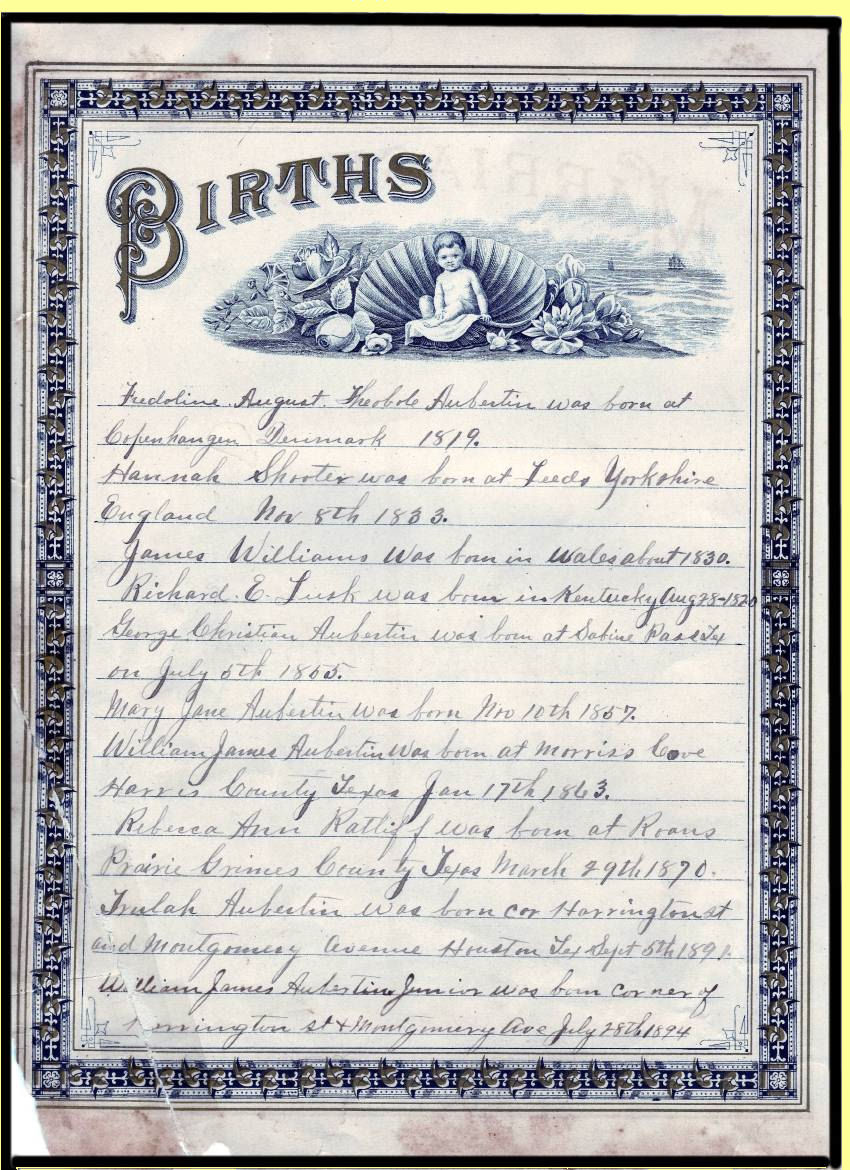 BIRTHS
Fredoline August Theobole Aubertin was born at
Copenhangen Denmark 1819.
Hannah Shooter was born at Leeds Yorkshire
England Nov 8th 1833.
James Williams was born in Wales about 1830.
Richard E. Lusk was born in Kentucky Aug 28-1820
George Christian Aubertin was born at Sabine Pass Tex
on July 5th 1855.
Mary Jane Aubertin was born Nov 10th 1857.
William James Aubertin was born at Morriss Cove
Harris County Texas Jan 17th 1863.
Rebecca Ann Ratliff was born at Roans
Prairie Grimes County Texas March 29th 1870.
Trulah Aubertin was born cor Harrington st
and Montgomery Avenue Houston Tex Sept 5th 1891.
William James Aubertin Junior was born corner of
Harrington st & Montgomery Ave July 28th 1894